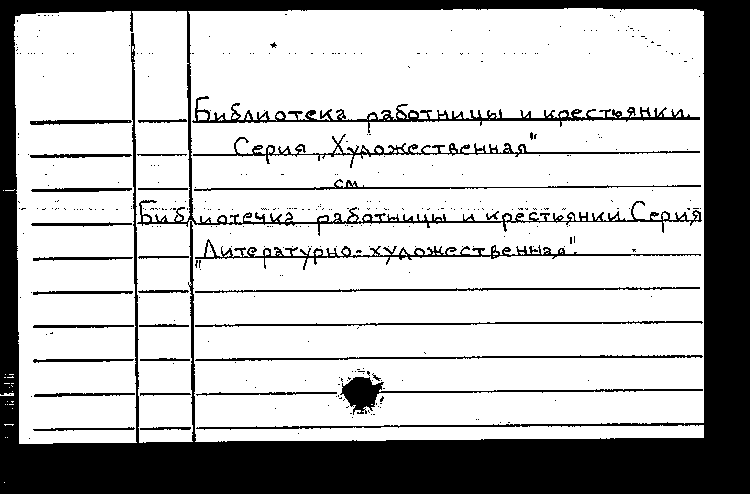 Библиотека работницы и крестьянки.
Серия „Художественная"
см.
Библиотечка работницы и крестьянки. Серия
„Литературно-художественная".